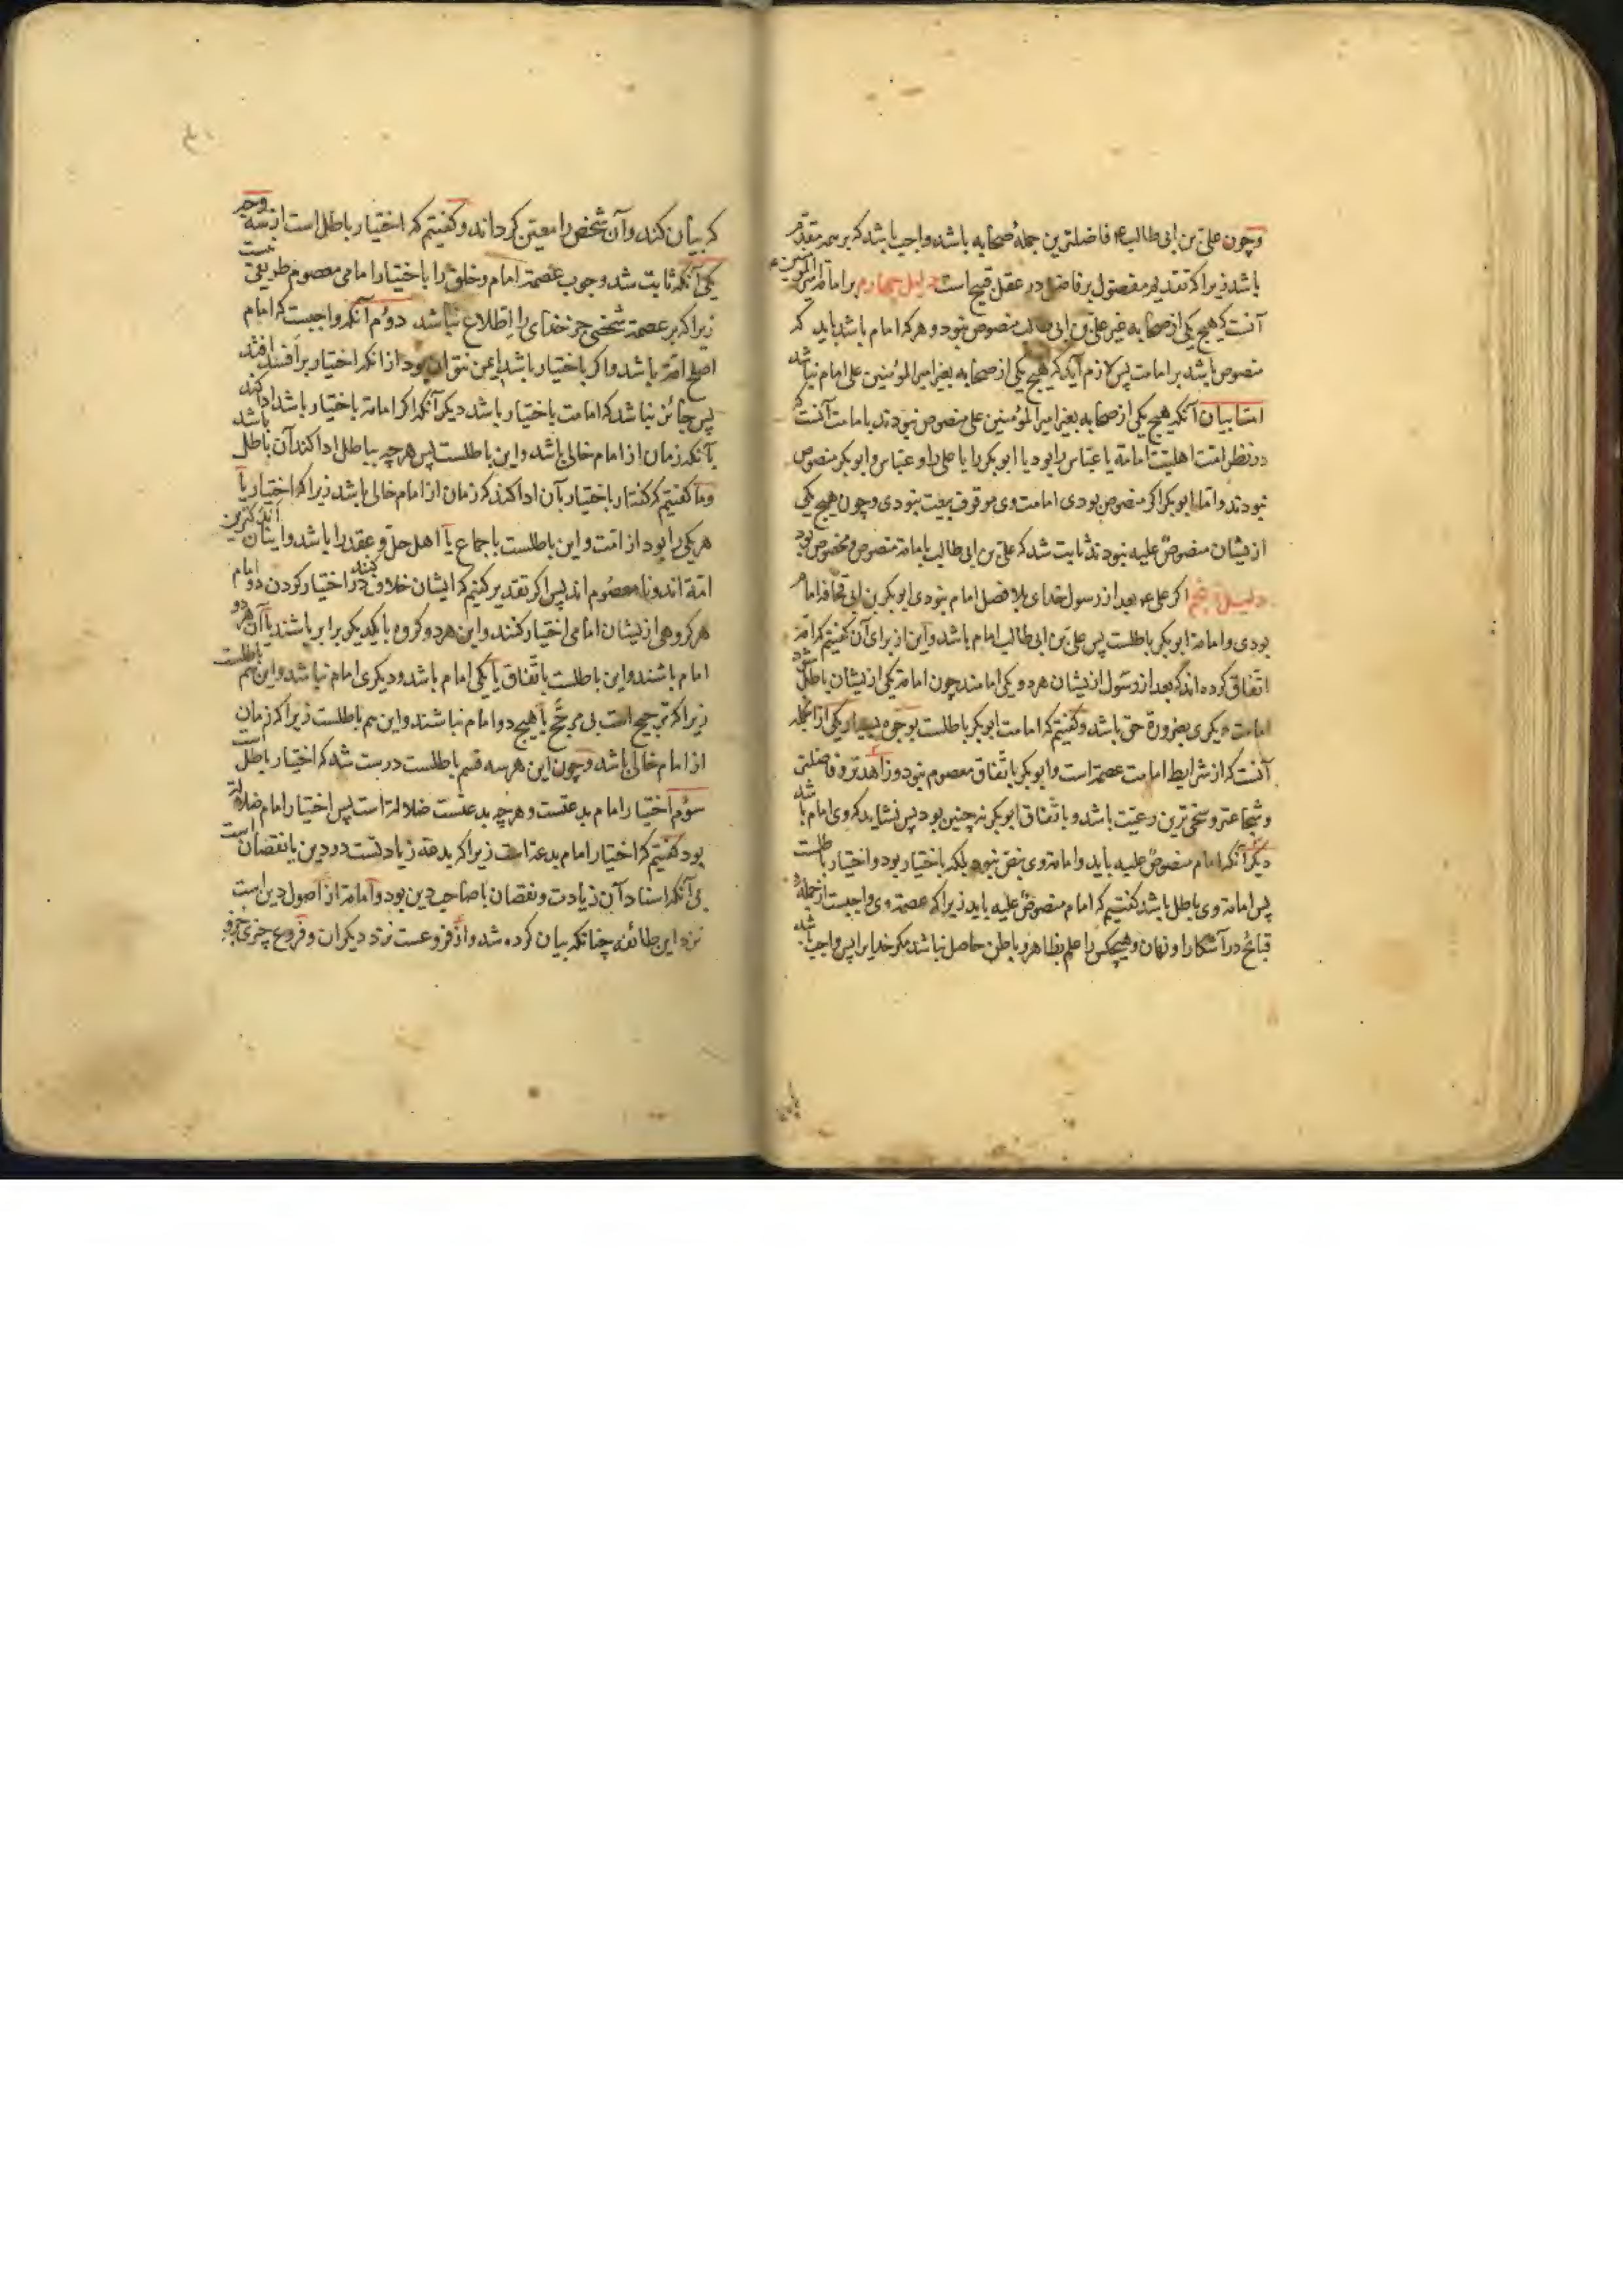 وچون علی بن ابی طالب ع فاضلترین جملهٔ صحابه باشد واجب باشد که بر همه مقدم
باشد زیرا که تقدیم مفضول بر فاضل در عقل قبیح است دلیل چهارم بر امامة امیر المؤمنین ع
آنست که هیچ یکی از صحابه غیر علی بن ابی طالب منصوص نبود و هر که امام باشد باید که
منصوص باشد بر امامت پس لازم آید که هیچ یکی از صحابه بغیر امیر المؤمنین علی امام نباشد
امّا بیان آنکه هیچ یکی از صحابه بغیر امیر المؤمنین علی منصوص نبودند بامامت آنست که
در نظر امّت اهلیّت امامة یا عبّاس را بود یا ابوبکر را یا علی را و عبّاس و ابوبکر منصوص
نبودند و امّا ابوبکر اگر منصوص بودی امامت وی موقوف بیعت نبودی و چون هیچ یکی
ازیشان منصوصٌ علیه نبودند ثابت شد که علی بن ابی طالب بامامة منصوص و مخصوص بود
دلیل پنجم اگر علی ع بعد از رسول خدای بلا فصل امام نبودی ابوبکر بن ابی قحافه امام
بودی و امامة ابوبکر باطلست پس علی بن ابی طالب امام باشد و این از برای آن گفتیم که امّة
اتّفاق کرده‌اند که بعد از رسول ازیشان هر دو یکی امامند چون امامة یکی ازیشان باطل شد
امامت دیگری بضرورة حق باشد و گفتیم که امامت ابوبکر باطلست بوجوه بسیار یکی از آنجمله
آنست که از شرایط امامت عصمة است و ابوبکر باتّفاق معصوم نبود و زاهدتر و فاضلتر
و شجاعتر و سخی‌ترین رعیّت باشد و باتّفاق ابوبکر نه چنین بود پس نشاید که وی امام باشد
دیگر آنکه امام منصوصٌ علیه باید و امامة وی بنصّ نبود بلکه باختیار بود و اختیار باطلست
پس امامة وی باطل باشد گفتیم که امام منصوصٌ علیه باید زیرا که عصمة وی واجبست از جملهٔ
قبائح در آشکارا و نهان و هیچکس را علم بظاهر و باطن حاصل نباشد مگر خدایرا پس واجب باشد
که بیان کند و آن شخص را معیّن گرداند و گفتیم که اختیار باطل است از سه وجه
یکی آنکه ثابت شد وجوب عصمة امام و خلق را باختیار امامی معصوم طریقی نیست
زیرا که بر عصمة شخصی جز خدای را اطّلاع نباشد دوم آنکه واجبست که امام
اصلح امّة باشد و اگر باختیار باشد ایمن نتوان بود از آنکه اختیار بر افسد افتد
پس جائز نباشد که امامت باختیار باشد دیگر آنکه اگر امامة باختیار باشد ادا کند
بآنکه زمان از امام خالی باشد و این باطلست پس هر چه بباطل ادا کند آن باطل باشد
و ما گفتیم که گفتار باختیار بآن ادا کند که زمان از امام خالی باشد زیرا که اختیار یا
هر یکی را بود از امّت و این باطلست باجماع یا اهل حلّ و عقد را باشد و ایشان اندکترین
امّة‌اند و نا معصوم‌اند پس اگر تقدیر کنیم که ایشان خلاف کنند در اختیار کردن دو امام
هر گروهی ازیشان امامی اختیار کنند و این هر دو گروه با یکدیگر برابر باشند یا آن هر دو
امام باشند و این باطلست باتّفاق یا یکی امام باشد و دیگری امام نباشد و این هم باطلست
زیرا که ترجیح است بی مرجّح یا هیچ دو امام نباشند و این هم باطلست زیرا که زمان
از امام خالی باشد و چون این هر سه قسم باطلست درست شد که اختیار باطل است
سوّم اختیار امام بدعتست و هر چه بدعتست ضلالة است پس اختیار امام ضلالة
بود گفتیم که اختیار امام بدعة است زیرا که بدعة زیادتست در دین یا نقصان است
بی آنکه اسناد آن زیادت و نقصان با صاحب دین بود و امامة از اصول دین است
نزد این طائفه چنانکه بیان کرده شد و از فروعست نزد دیگران و فروع